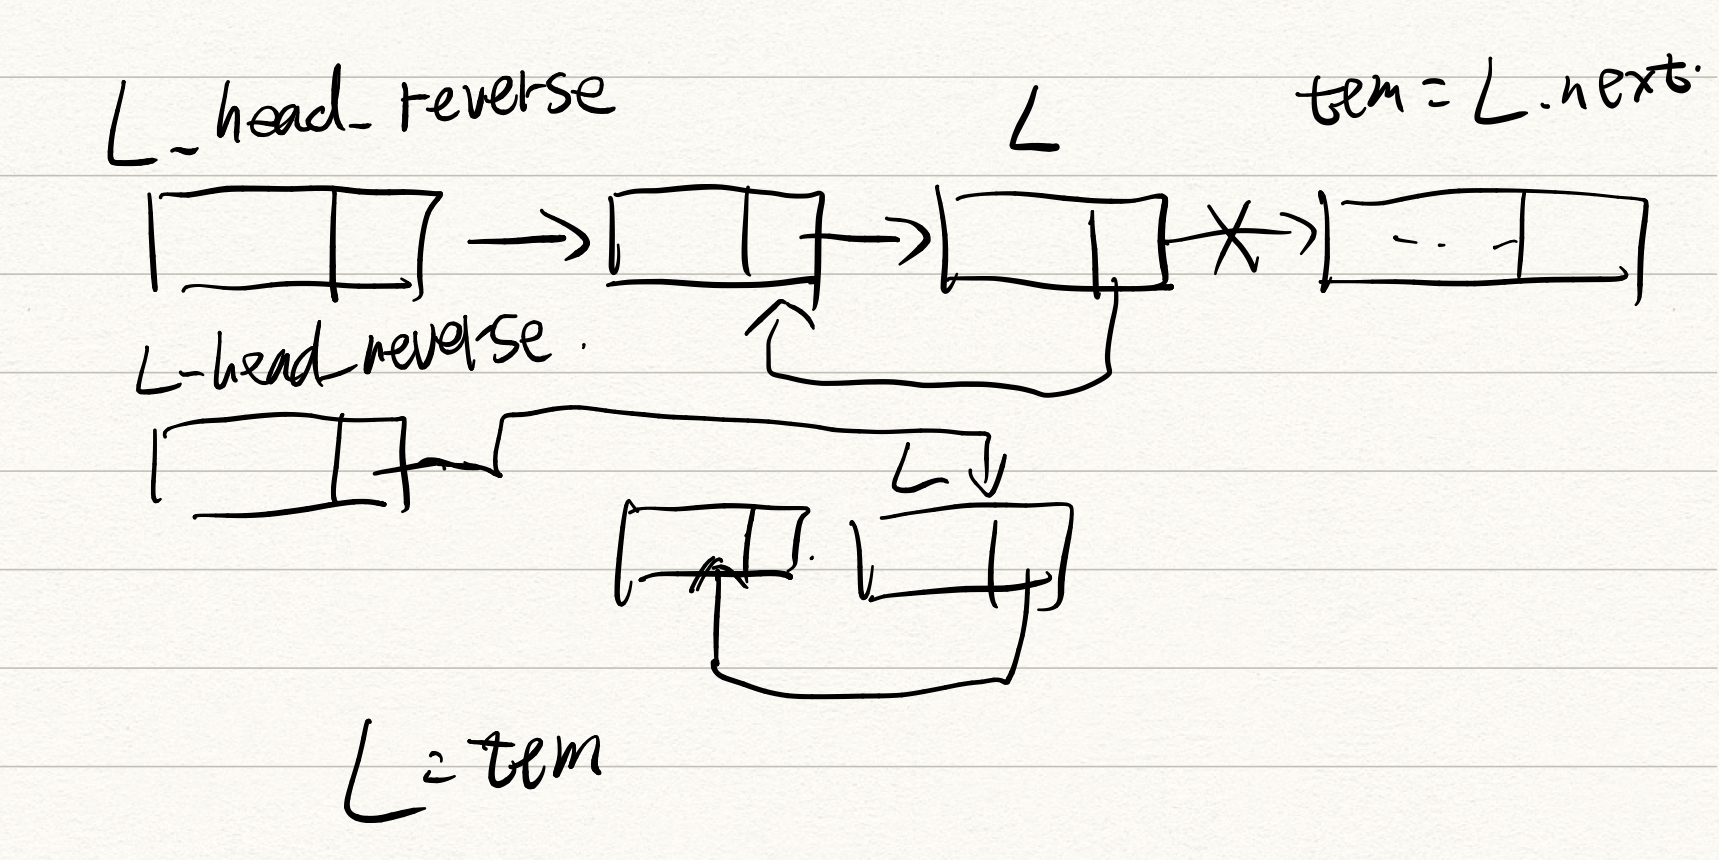 L_head_reverse
L
tem = L.next.
L-head_reverse.
L
L = tem